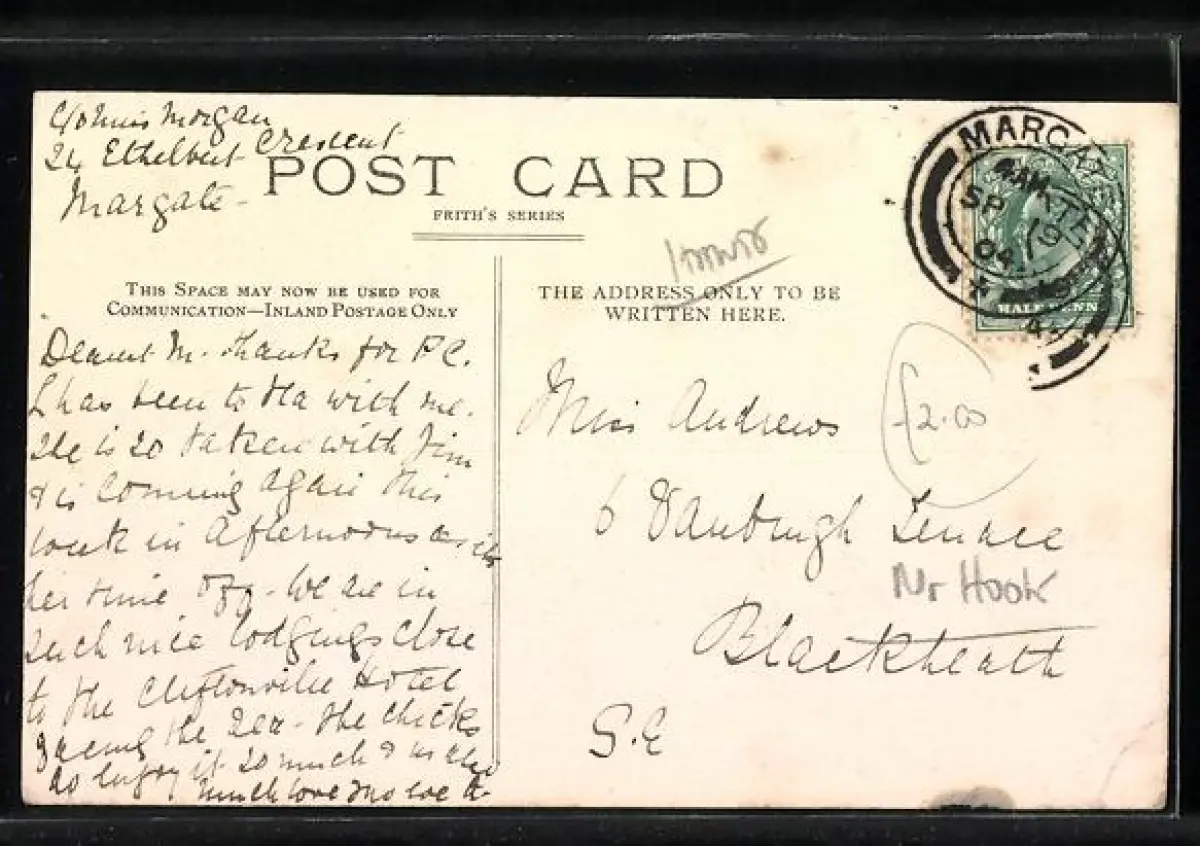 C/o Miss Morgan
24 Ethelbert Crescent
Margate
POST CARD
FRITH'S SERIES
THIS SPACE MAY NOW BE USED FOR
COMMUNICATION—INLAND POSTAGE ONLY
THE ADDRESS ONLY TO BE
WRITTEN HERE.
MARGATE
4 AM
SP 19
04
HALFPENNY
Dearest M. thanks for P C.
L has been to tea with me.
She is so taken with Jim
& is coming again this
week in afternoons as its
her time off. We are in
such nice lodgings close
to the Cliftonville Hotel
facing the sea. The chicks
do enjoy it so much &
much love
Miss Andrews
£2.00
6 Vanbrugh Terrace
Nr Hook
Blackheath
S.E